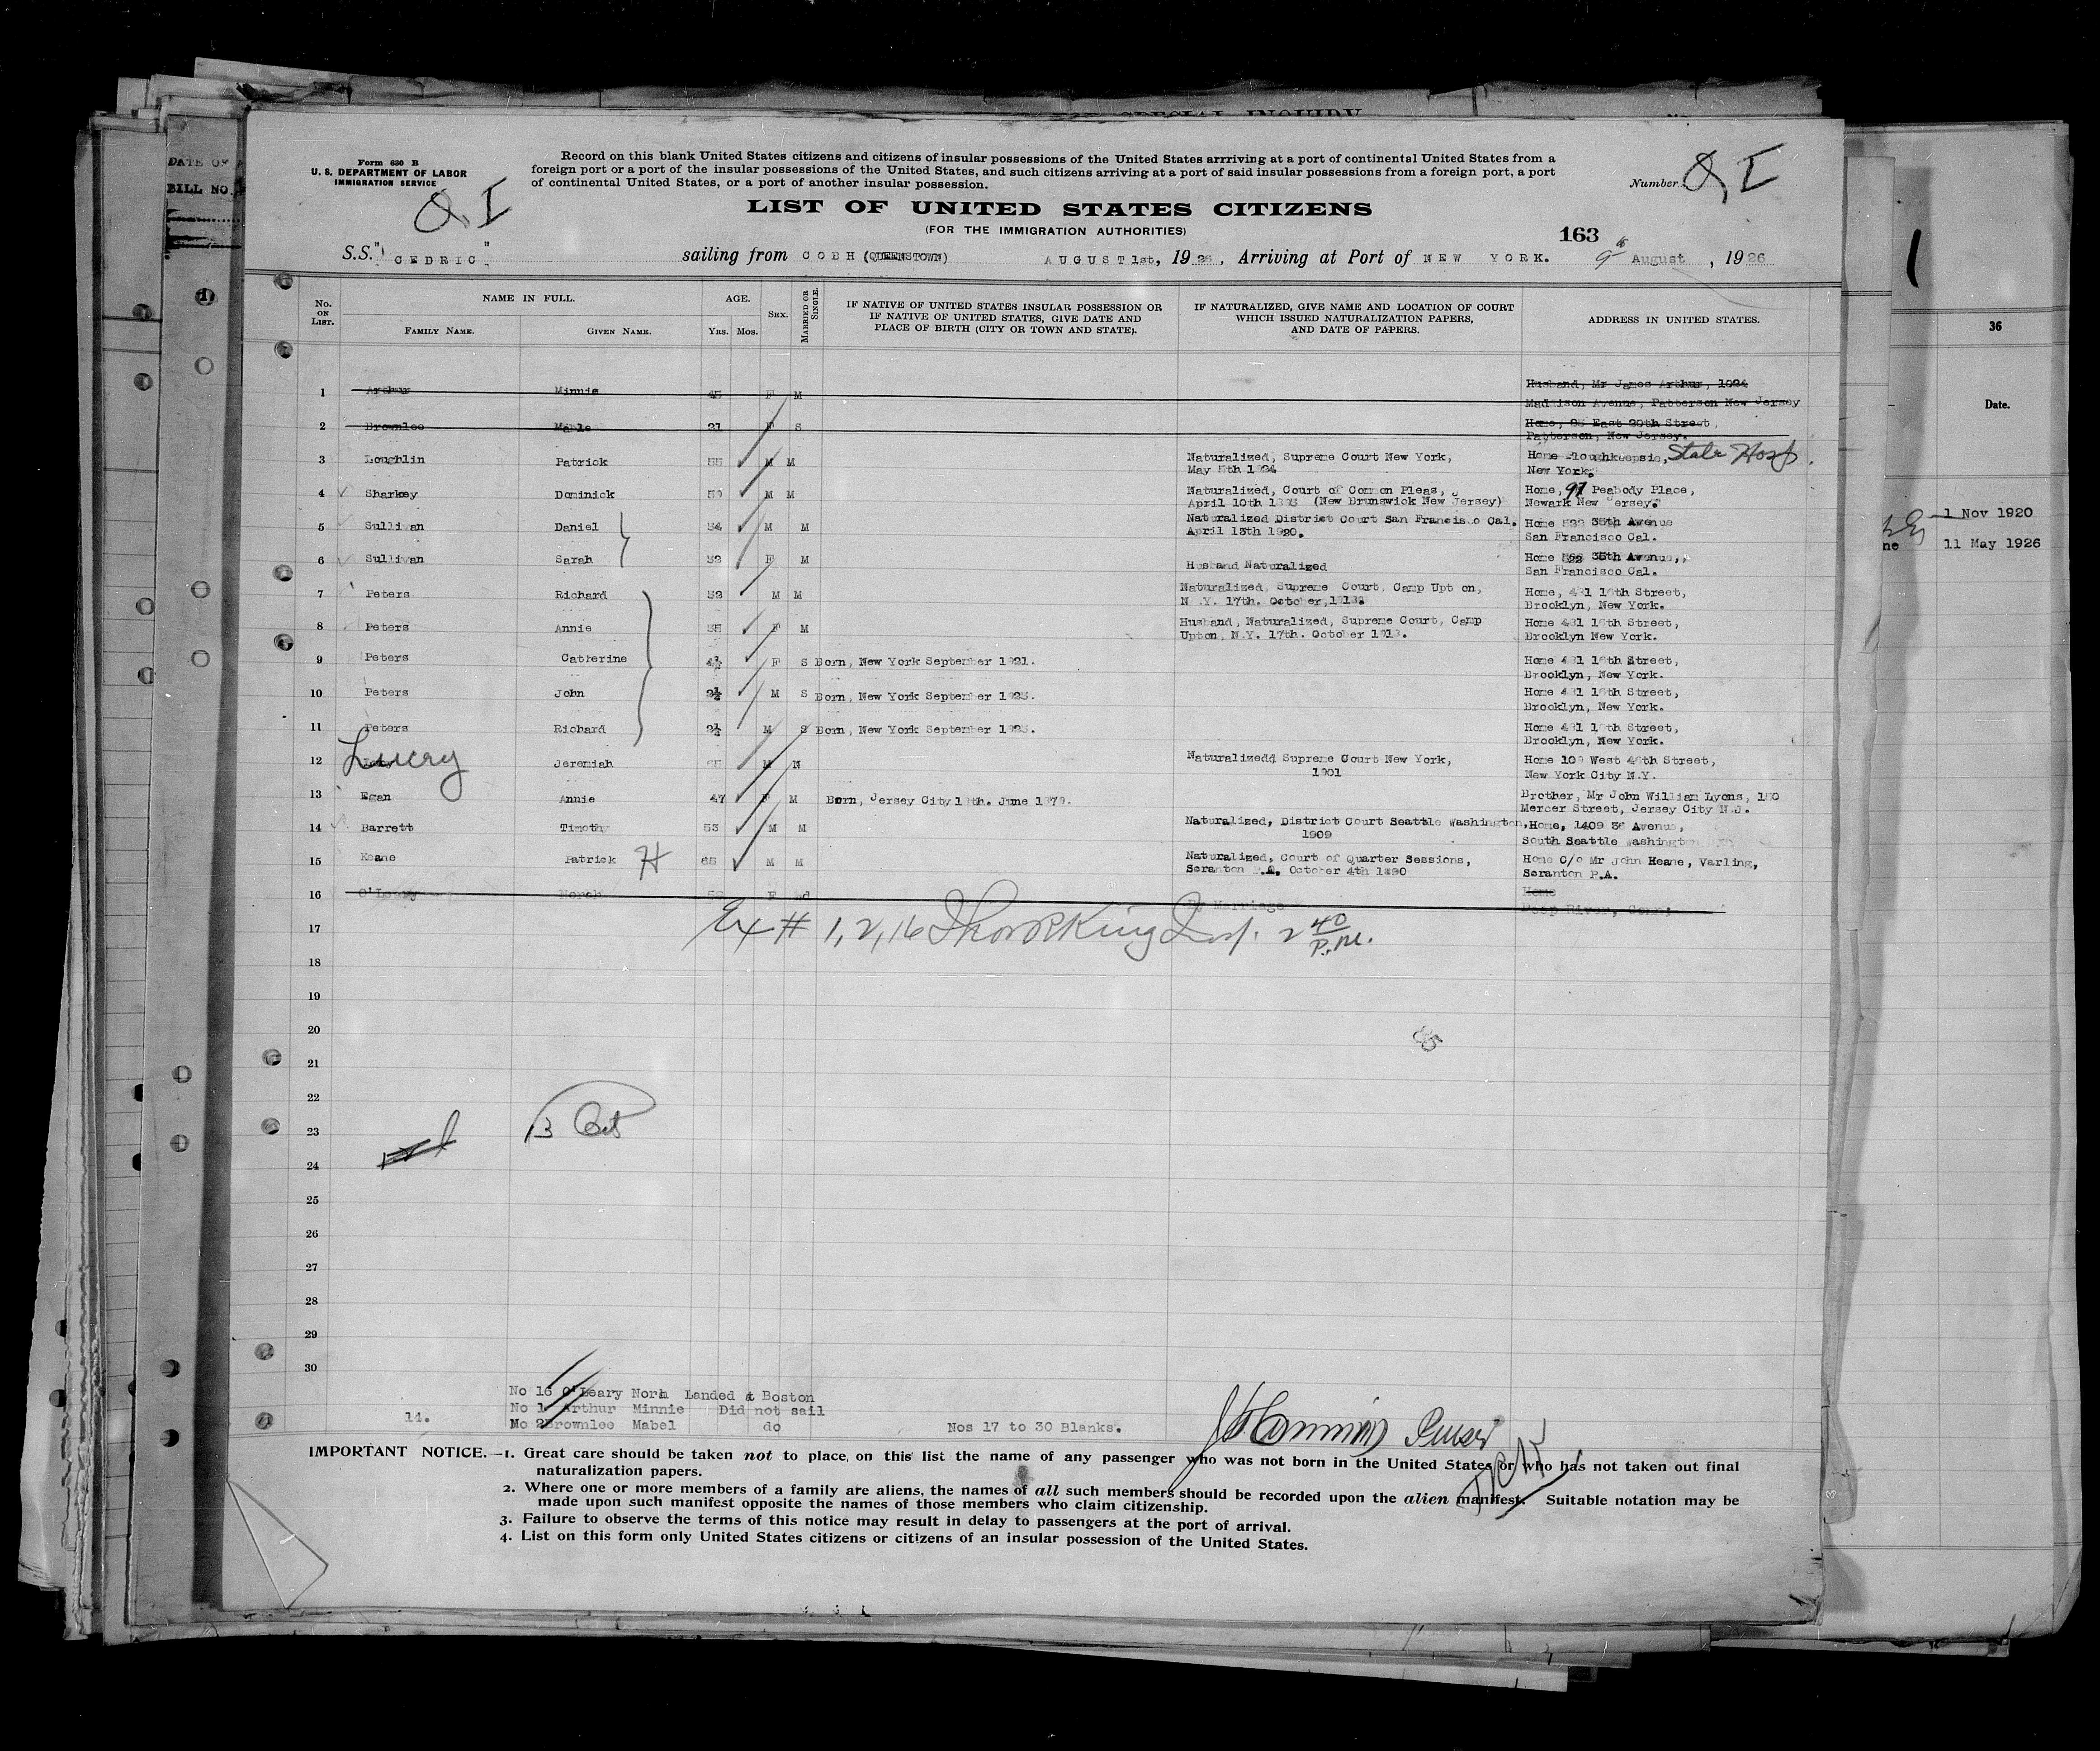 SPECIAL INQUIRY
DATE OF
BILL NO.
Form 630 B
U. S. DEPARTMENT OF LABOR
IMMIGRATION SERVICE
Q I
Record on this blank United States citizens and citizens of insular possessions of the United States arrriving at a port of continental United States from a
foreign port or a port of the insular possessions of the United States, and such citizens arriving at a port of said insular possessions from a foreign port, a port
of continental United States, or a port of another insular possession.
Number Q, I
LIST OF UNITED STATES CITIZENS
(FOR THE IMMIGRATION AUTHORITIES)
163
S.S. "CEDRIC" sailing from COBH (QUEENSTOWN) AUGUST 1st, 1926, Arriving at Port of NEW YORK. 9th August, 1926
No. ON LIST. NAME IN FULL. AGE. SEX. MARRIED OR SINGLE.
FAMILY NAME. GIVEN NAME. YRS. MOS.
IF NATIVE OF UNITED STATES INSULAR POSSESSION OR
IF NATIVE OF UNITED STATES, GIVE DATE AND
PLACE OF BIRTH (CITY OR TOWN AND STATE).
IF NATURALIZED, GIVE NAME AND LOCATION OF COURT
WHICH ISSUED NATURALIZATION PAPERS,
AND DATE OF PAPERS.
ADDRESS IN UNITED STATES.
1 Arthur Minnie 45 F M Husband, Mr James Arthur, 1024
Maddison Avenue, Patterson New Jersey
2 Brownlee Mable 21 F S Home, 95 East 20th Street,
Patterson, New Jersey.
3 Loughlin Patrick 55 M M Naturalized, Supreme Court New York, Home Ploughkeepsie, State Hosp.
May 5th New York.
4 Sharkey Dominick 59 M M Naturalized, Court of Common Pleas, Home, 97 Peabody Place,
April 10th (New Brunswick New Jersey) Newark New Jersey.
5 Sullivan Daniel 34 M M Naturalized District Court San Francisco Cal. Home 35th Avenue
April 13th 1920. San Francisco Cal.
6 Sullivan Sarah 32 F M Husband Naturalized Home 35th Avenue,
San Francisco Cal.
7 Peters Richard 32 M M Naturalized, Supreme Court, Camp Upt on, Home, 431 16th Street,
N.Y. 17th. October, Brooklyn, New York.
8 Peters Annie 35 F M Husband, Naturalized, Supreme Court, Camp Home 431 16th Street,
Upton, N.Y. 17th. October Brooklyn New York.
9 Peters Catherine 4½ F S Born, New York September 1921. Home 431 16th Street,
Brooklyn, New York.
10 Peters John 2½ M S Born, New York September 1923. Home 431 16th Street,
Brooklyn, New York.
11 Peters Richard 2½ M S Born, New York September 1923. Home 431 16th Street,
Brooklyn, New York.
12 Lucey Jeremiah 65 M M Naturalizedd Supreme Court New York, Home 109 West 46th Street,
1901 New York City N.Y.
13 Egan Annie 47 F M Born, Jersey City 18th. June 1879. Brother, Mr John William Lyons, 150
Mercer Street, Jersey City N.J.
14 Barrett Timothy 53 M M Naturalized, District Court Seattle Washington, Home, 1409 36 Avenue,
1909 South Seattle Washington
15 Keane Patrick H 65 M M Naturalized, Court of Quarter Sessions, Home C/o Mr John Keane, Varling,
Scranton P.A. October 4th 1890 Scranton P.A.
16 O'Leary Norah F Md By Marriage Home
Deep River, Conn.
17 Ex # 1, 2, 16 2 40 P.M.
18
19
20
85
21
22
23 13
24
25
26
27
28
29
30
No 16 O'Leary Norh Landed at Boston
No 1 Arthur Minnie Did not sail
14. No 2 Brownlee Mabel do Nos 17 to 30 Blanks.
Purser
IMPORTANT NOTICE.—1. Great care should be taken not to place on this list the name of any passenger who was not born in the United States or who has not taken out final
naturalization papers.
2. Where one or more members of a family are aliens, the names of all such members should be recorded upon the alien manifest. Suitable notation may be
made upon such manifest opposite the names of those members who claim citizenship.
3. Failure to observe the terms of this notice may result in delay to passengers at the port of arrival.
4. List on this form only United States citizens or citizens of an insular possession of the United States.
1
36
Date.
1 Nov 1920
ne 11 May 1926